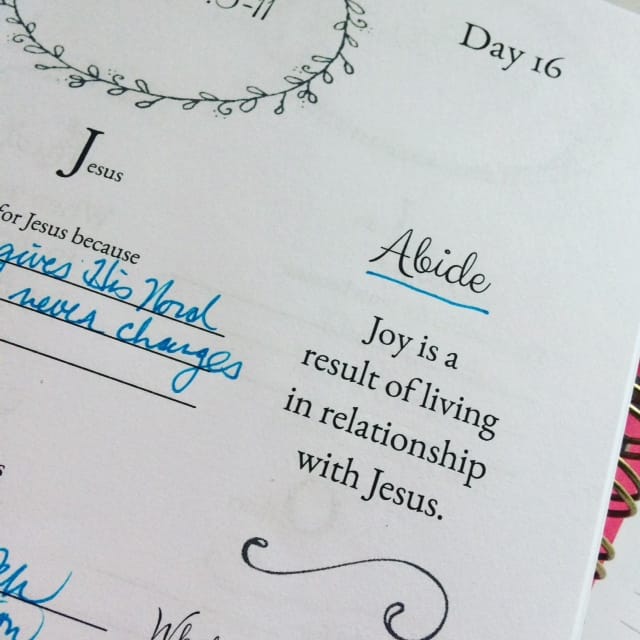 Day 16
Jesus
for Jesus because
gives His Word
never changes
Abide
Joy is a
result of living
in relationship
with Jesus.